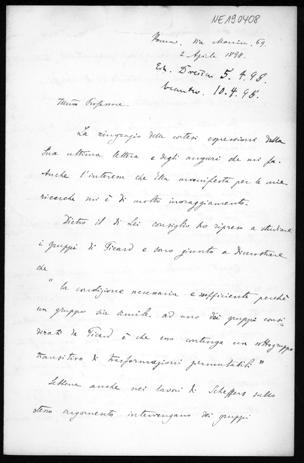 NE190408
Roma, Via Marcina, 69.
2 Aprile 1898.
Erh. Dresden 5.4.98.
beantw. 10.4.98.
Illmo Professore.
La ringrazio delle cortesi espressioni della
Sua ultima lettera e degli auguri che mi fa.
Anche l'interesse che Ella manifesta per le mie
ricerche mi è di molto incoraggiamento.
Dietro il di Lei consiglio ho ripreso a studiare
i gruppi di Picard e sono giunto a dimostrare
che
"la condizione necessaria e sufficiente perchè
un gruppo sia simile ad uno dei gruppi consi-
derati da Picard è che esso contenga un sottogruppo
transitivo di trasformazioni permutabili"
Sebbene anche nei lavori di Scheffers sullo
stesso argomento intervengano dei gruppi